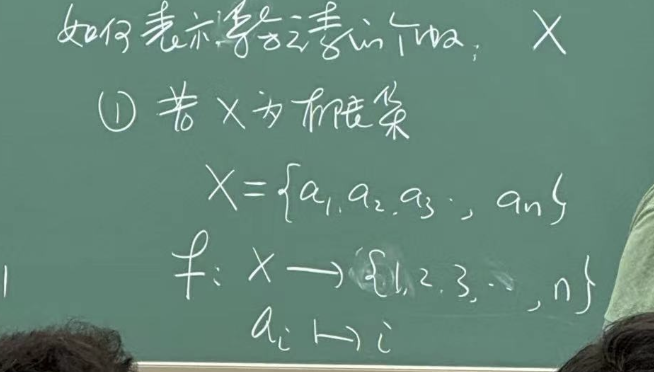 如何表示集合元素的个数: X
① 若 X 为有限集
X={a₁, a₂, a₃ ⋯, aₙ}
f: X ⟶ {1, 2, 3, ⋯, n}
aᵢ ↦ i